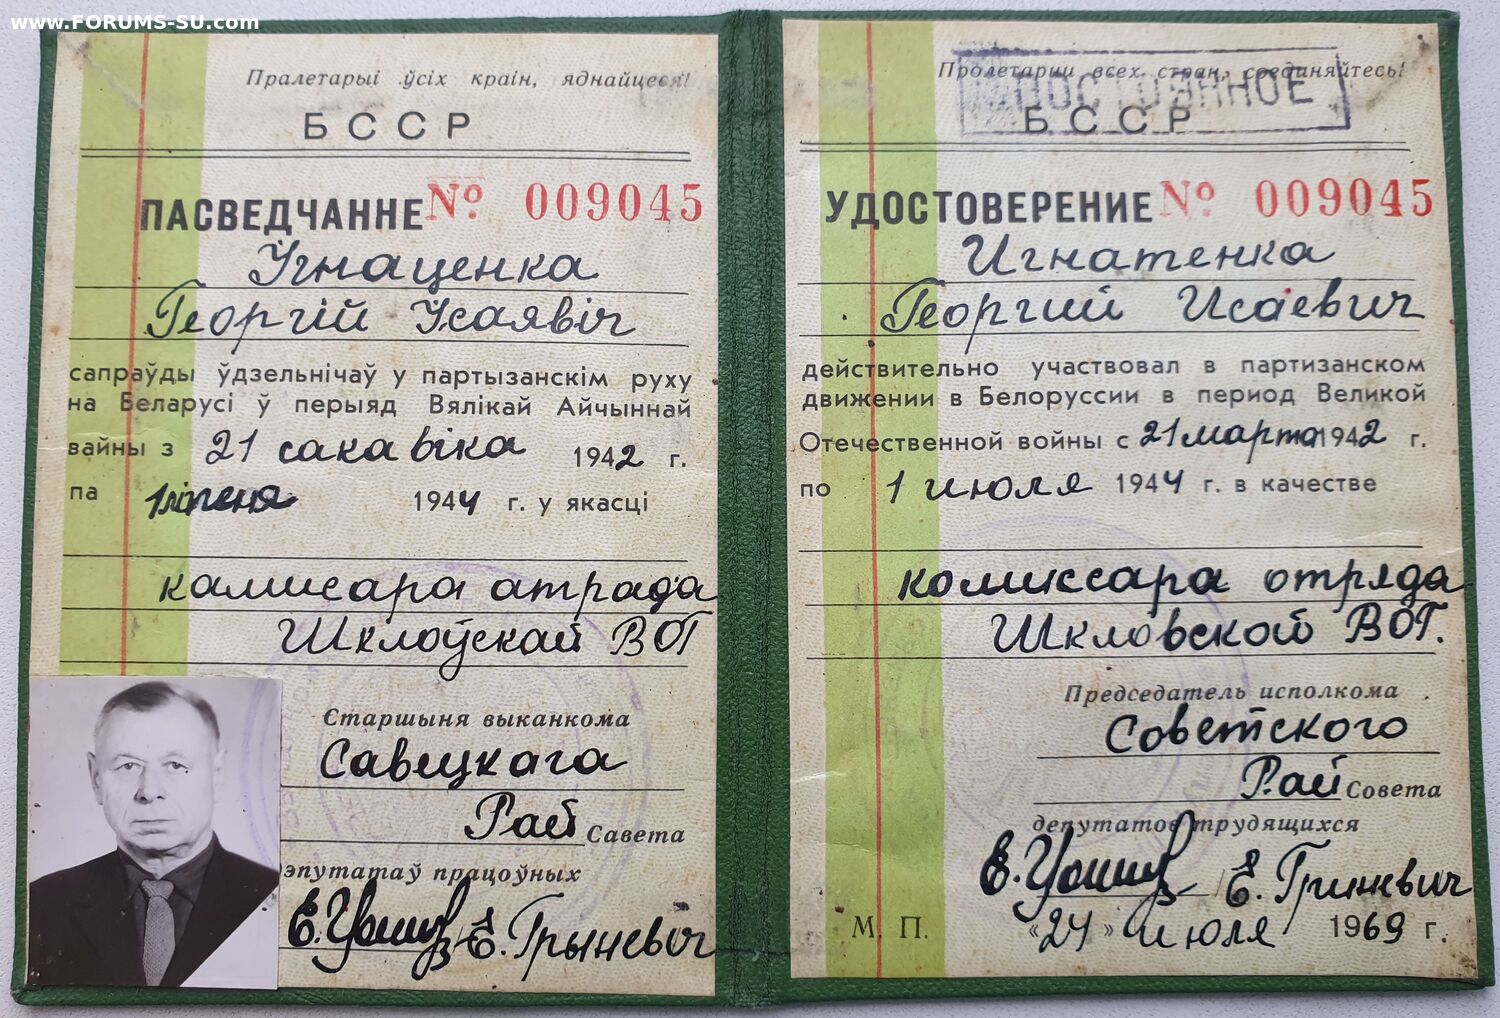 www.FORUMS-SU.com
Пралетарыі ўсіх краін, яднайцеся!
БССР
ПАСВЕДЧАННЕ № 009045
Ігнаценка
Георгій Ісаявіч
сапраўды ўдзельнічаў у партызанскім руху
на Беларусі ў перыяд Вялікай Айчыннай
вайны з 21 сакавіка 1942 г.
па 1 ліпеня 1944 г. у якасці
камісара атрада
Шклоўскай ВОГ
Старшыня выканкома
Савецкага
Рай Савета
дэпутатаў працоўных
Е. Грыневіч
Пролетарии всех стран, соединяйтесь!
ПОСТОЯННОЕ
БССР
УДОСТОВЕРЕНИЕ № 009045
Игнатенка
Георгий Исаевич
действительно участвовал в партизанском
движении в Белоруссии в период Великой
Отечественной войны с 21 марта 1942 г.
по 1 июля 1944 г. в качестве
комиссара отряда
Шкловской ВОГ.
Председатель исполкома
Советского
Рай Совета
депутатов трудящихся
Е. Гриневич
М. П. «24» июля 1969 г.